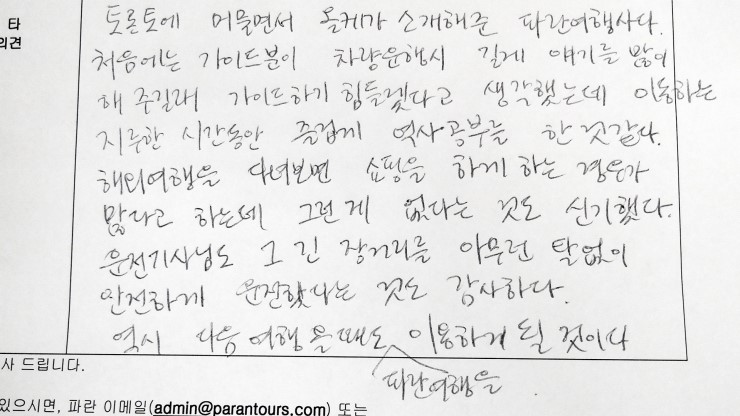 타
의견
토론토에 머물면서 올케가 소개해준 파란여행사다.
처음에는 가이드분이 차량운행시 길게 얘기를 많이
해 주길래 가이드하기 힘들겠다고 생각했는데 이동하는
지루한 시간동안 즐겁게 역사공부를 한 것 같다.
해외여행을 다녀보면 쇼핑을 하게 하는 경우가
많다고 하는데 그런 게 없다는 것도 신기했다.
운전기사님도 그 긴 장거리를 아무런 탈없이
안전하게 운전했다는 것도 감사하다.
역시 다음 여행 올때도 이용하게 될 것이다
파란여행을
사 드립니다.
있으시면, 파란 이메일(admin@parantours.com) 또는